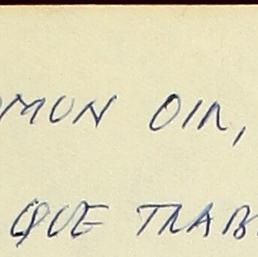 OMUN OIR,
QUE TRAB